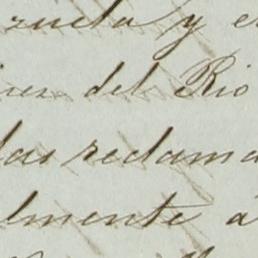 zuela y e
del Rio
las reclama
lmente á